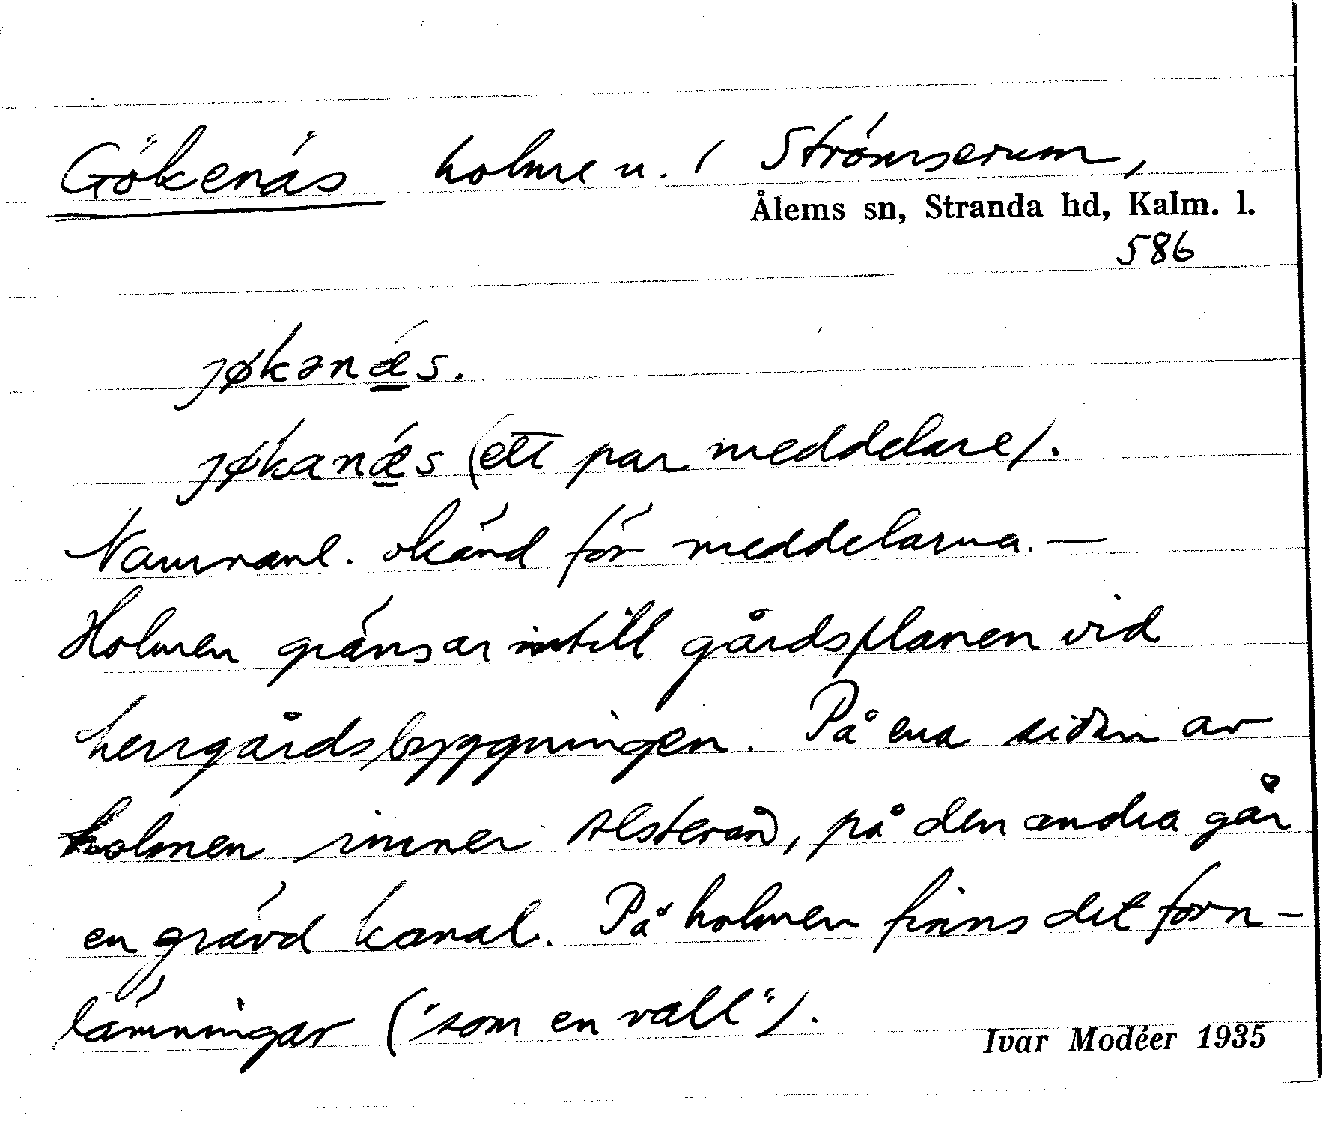 Gökenäs holme n. i Strömserum,
Ålems sn, Stranda hd, Kalm. l.
586
jøkənæ̀s.
jøkanæ̀s (ett par meddelare).
Namnanl. okänd för meddelarna. —
Holmen gränsar intill gårdsplanen vid
herrgårdsbyggningen. På ena sidan av
holmen rinner Alsterån, på den andra går
en grävd kanal. På holmen finns det forn-
lämningar ("som en vall").
Ivar Modéer 1935